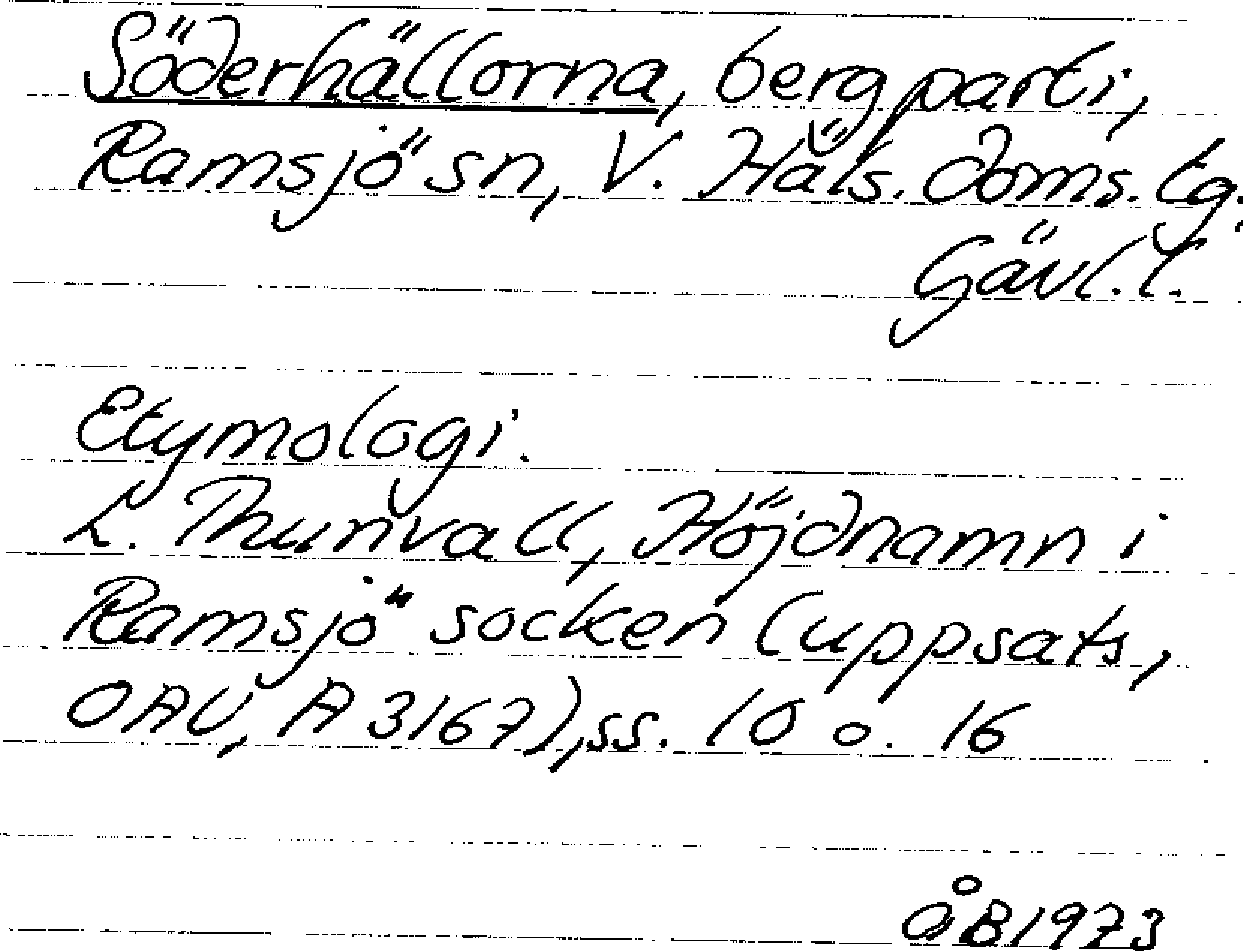 Söderhällorna, bergparti,
Ramsjö sn, V. Häls. doms. tg.
Gävl. l.
Etymologi.
L. Thunvall, Höjdnamn i
Ramsjö socken (uppsats,
OAU, A 3167), ss. 10 o. 16
ÅB 1973